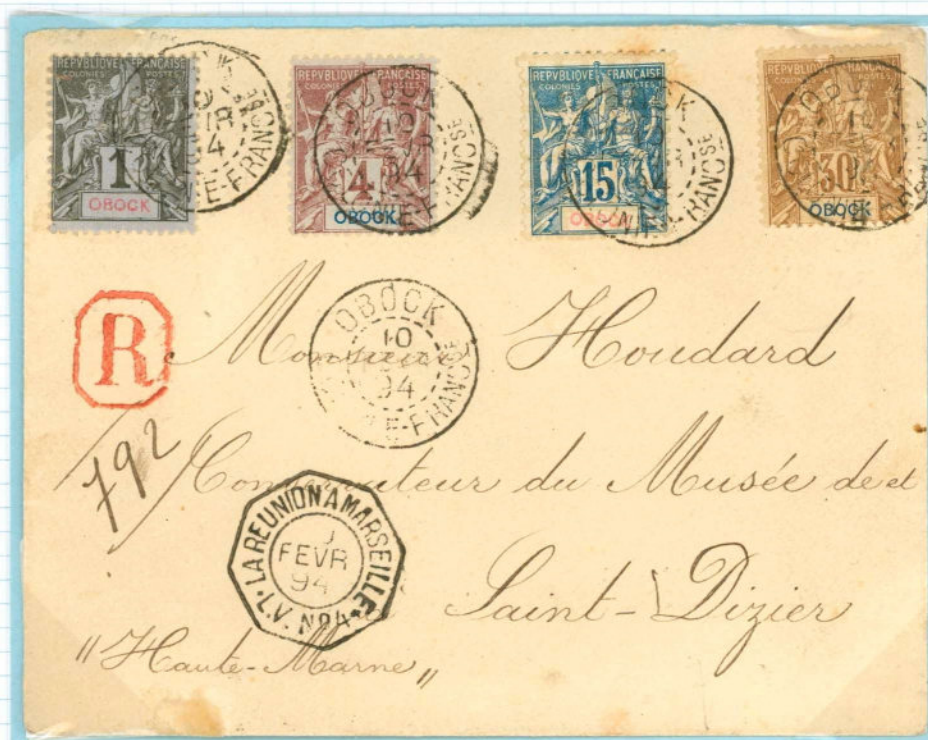 REPVBLIQVE FRANÇAISE
COLONIES POSTES
1
OBOCK
REPVBLIQVE FRANÇAISE
COLONIES POSTES
4
OBOCK
REPVBLIQVE FRANÇAISE
COLONIES POSTES
15
OBOCK
REPVBLIQVE FRANÇAISE
COLONIES POSTES
30
OBOCK
OBOCK
10
94
R
Monsieur Houdard
792
du Musée de
LA REUNION A MARSEILLE
FEVR
94
L.V. No4
Saint-Dizier
"Haute-Marne"